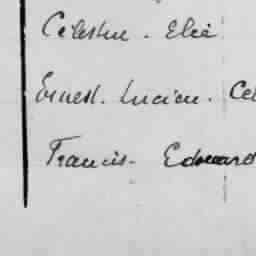 Célestine. Elie
Ernest. Lucien. Cel
Francis. Edouard